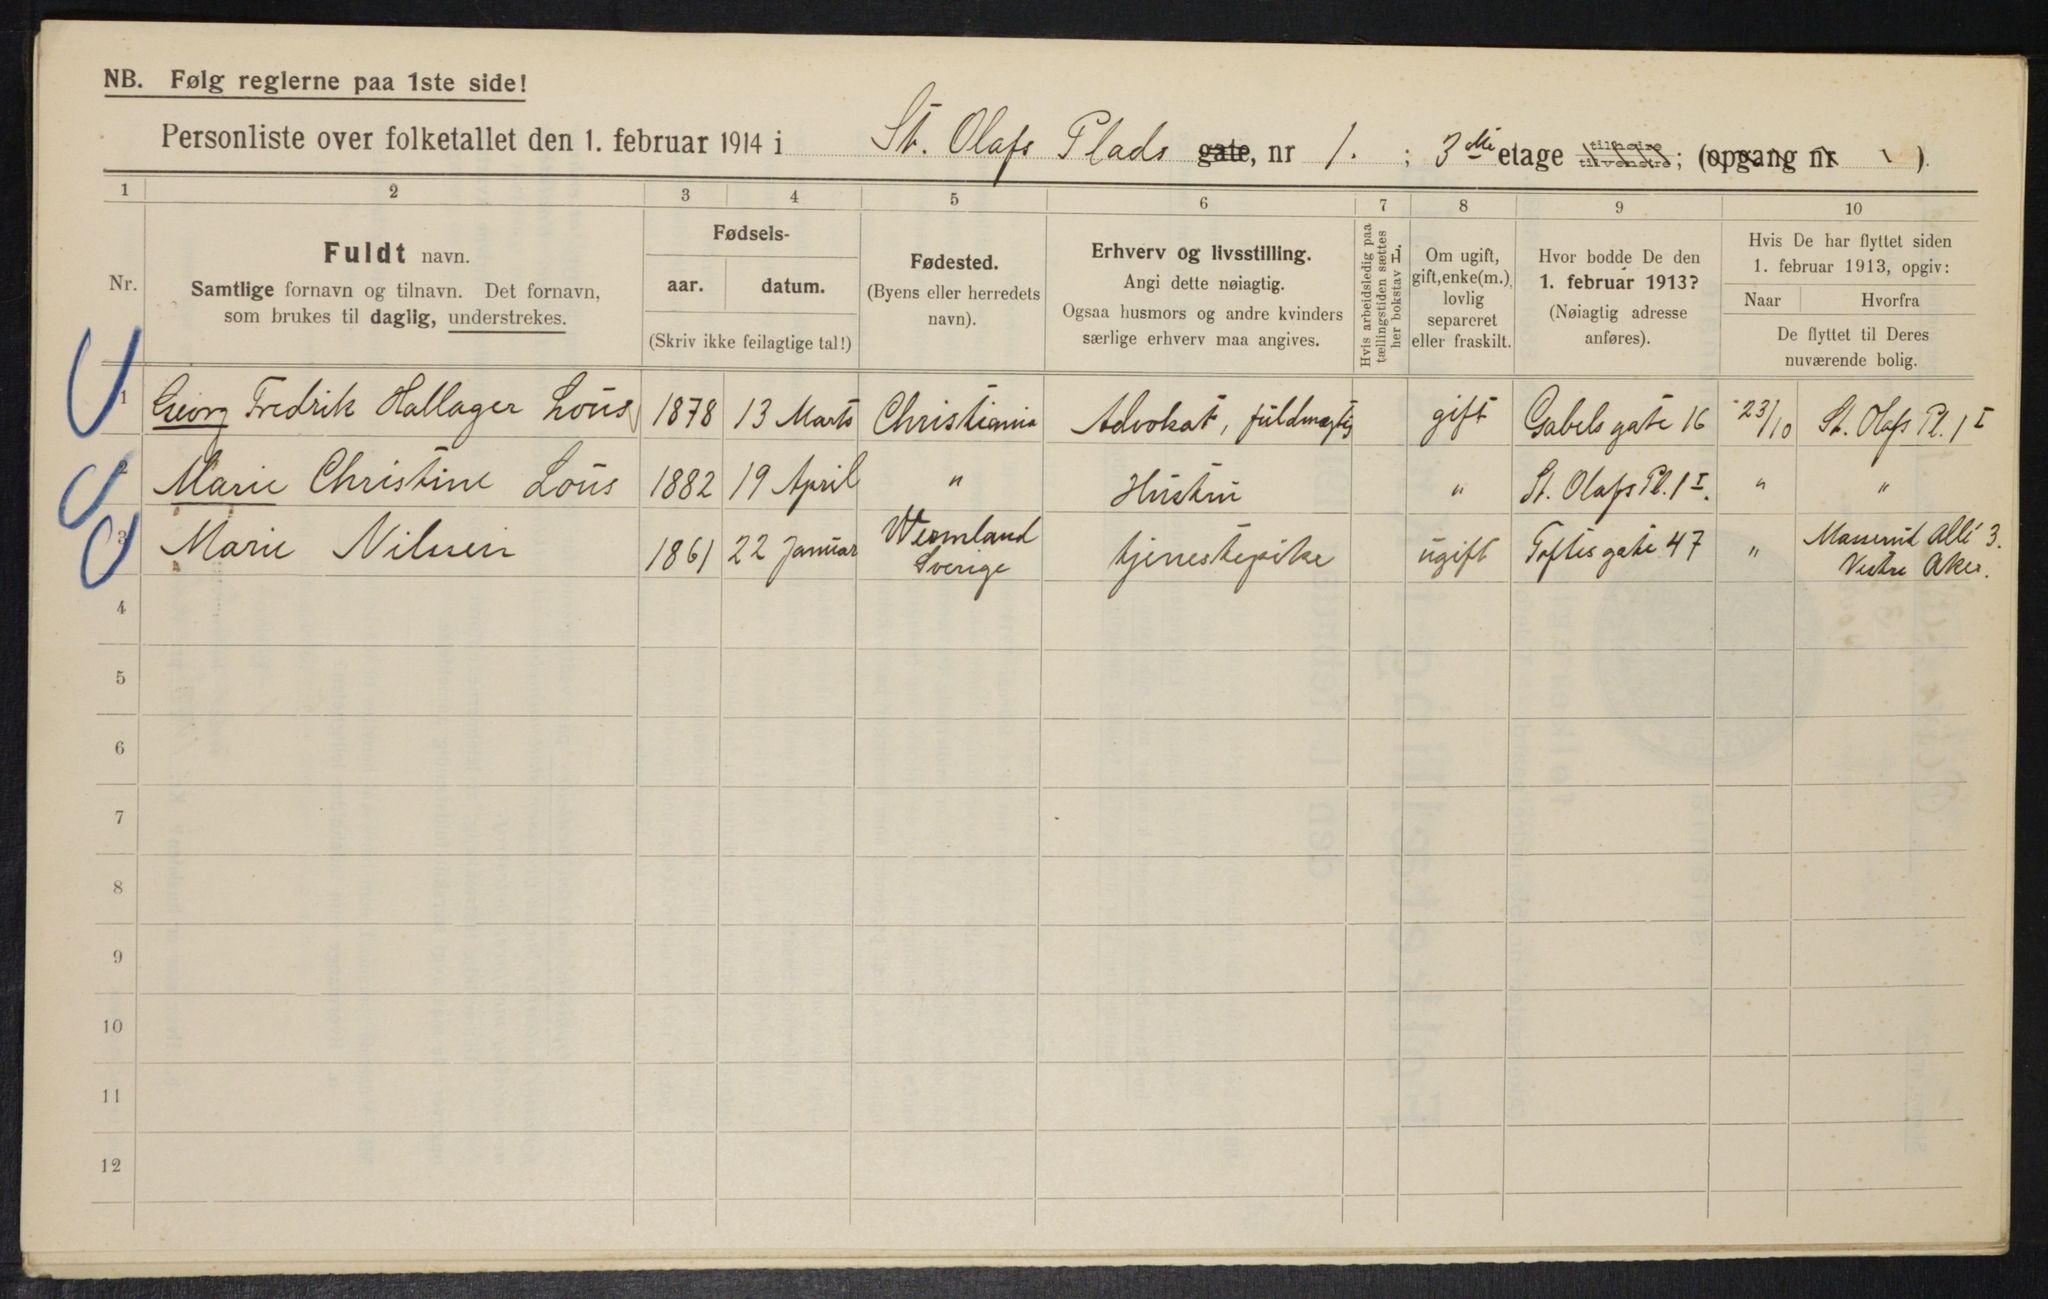 NB. Følg reglerne paa 1ste side!
Personliste over folketallet den 1. februar 1914 i St. Olafs Plads gate, nr 1. ; 3die etage tilhøire tilvenstre; (opgang nr )
1 2 3 4 5 6 7 8 9 10
Nr.
Fuldt navn.
Samtlige fornavn og tilnavn. Det fornavn,
som brukes til daglig, understrekes.
Fødsels-
aar. datum.
(Skriv ikke feilagtige tal!)
Fødested.
(Byens eller herredets
navn).
Erhverv og livsstilling.
Angi dette nøiagtig.
Ogsaa husmors og andre kvinders
særlige erhverv maa angives.
Hvis arbeidsledig paa
tællingstiden sættes
her bokstav L.
Om ugift,
gift, enke(m.),
lovlig
separeret
eller fraskilt.
Hvor bodde De den
1. februar 1913?
(Nøiagtig adresse
anføres).
Hvis De har flyttet siden
1. februar 1913, opgiv:
Naar Hvorfra
De flyttet til Deres
nuværende bolig.
1 Georg Fredrik Hallager Loüs 1878 13 Marts Christiania Advokat, fuldmægtig gift Gabels gate 16 23/10 St. Olafs Pl. 1 I
2 Marie Christine Loüs 1882 19 April " Hustru " St. Olafs Pl. 1 I. " "
3 Marie Nilsen 1861 22 Januar Wermland Sverige tjenestepike ugift Toftes gate 47 " Masserud Allé 3. Vestre Aker.
4
5
6
7
8
9
10
11
12